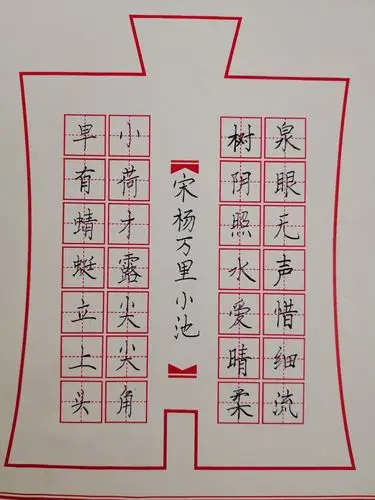 泉眼无声惜细流
树阴照水爱晴柔
宋杨万里小池
小荷才露尖尖角
早有蜻蜓立上头